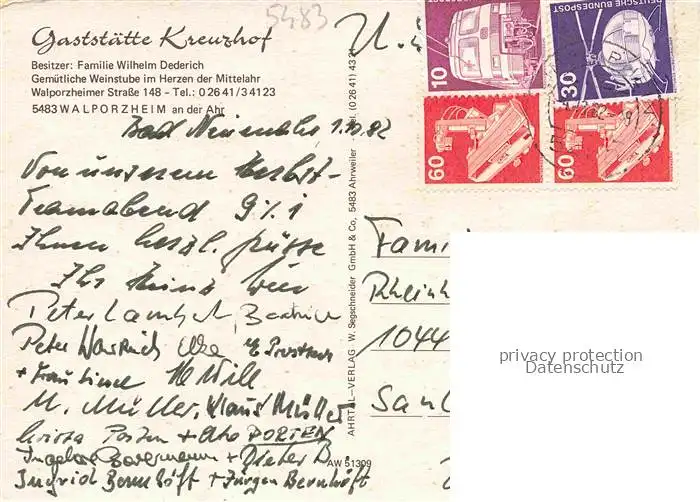 5483
Gaststätte Kreuzhof
Besitzer: Familie Wilhelm Dederich
Gemütliche Weinstube im Herzen der Mittelahr
Walporzheimer Straße 148 - Tel.: 0 26 41/3 41 23
5483 WALPORZHEIM an der Ahr
Bad Neuenahr, 1.10.82
Von unserem Herbst-
Teamabend
Ihnen herzl. Grüsse
Ihr Heinz
Peter Lambert, Beatrice
Peter
+ Frau
M. Müller, Klaus Müller
Porten + Otto PORTEN
Ingeborg + Dieter B.
Ingrid Bernhöft + Jürgen Bernhöft
AHRTAL-VERLAG W. Segschneider GmbH & Co, 5483 Ahrweiler
AW 51309
10
DEUTSCHE BUNDESPOST
30
60
60
Fami
Rheinh
1044
San
privacy protection
Datenschutz